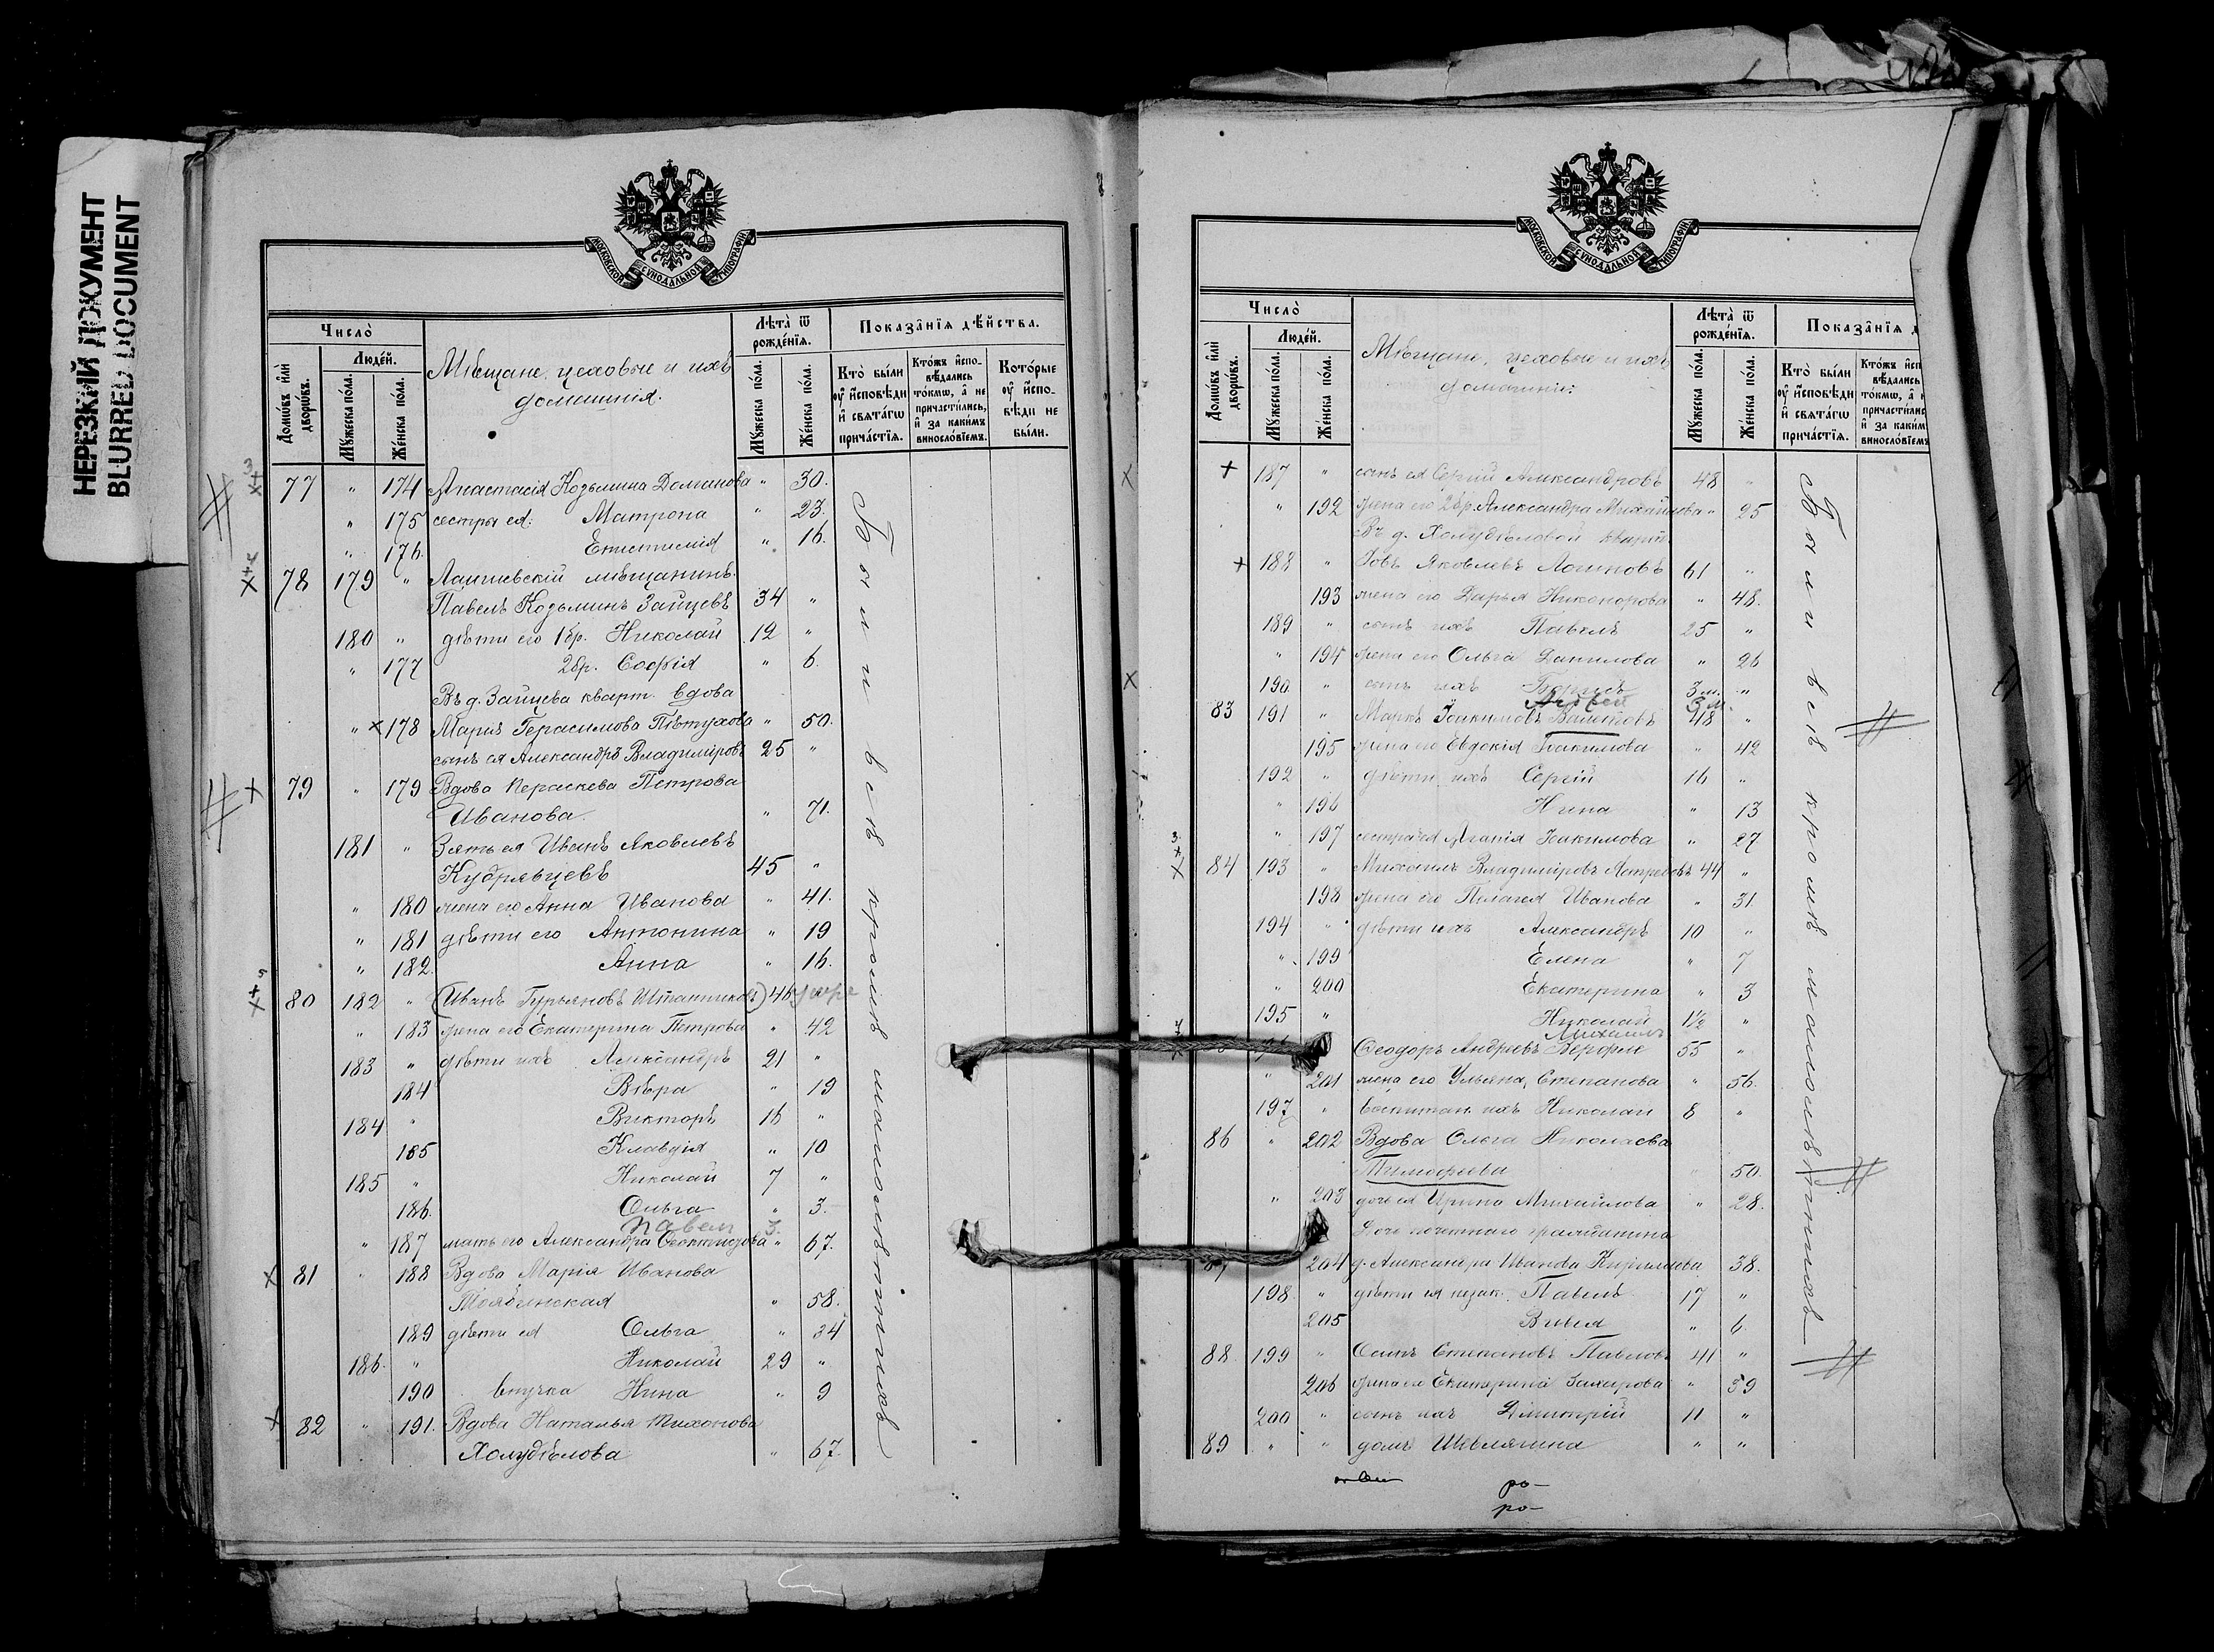 НЕРЕЗКИЙ ДОКУМЕНТ
BLURRED DOCUMENT
МОСКОВСКОЙ СѴНОДАЛЬНОЙ ТИПОГРАФІИ
Число̀
Люде́й.
Домѡ́въ и҆лѝ дворѡ́въ.
Мꙋ́жеска по́ла.
Же́нска по́ла.
Мѣщане, цеховые и ихъ
домашнія.
Лѣта̀ ѿ рожде́нїѧ.
Мꙋ́жеска по́ла.
Же́нска по́ла.
Показа̂нїѧ дѣ́йства.
Кто̀ бы́ли оу҆ и҆сповѣ́ди и҆ свѧта́гѡ прича́стїѧ.
Кто́жъ и҆сповѣ́дались то́кмѡ, а҆ не причасти́лись, и҆ за каки́мъ винослӧвїемъ.
Кото́рые оу҆ и҆сповѣ́ди не бы́ли.
77 " 174 Анастасія Козьмина Доманова " 30.
" 175 сестры ея: Матрона " 23.
" 176. Епистимія " 16.
78 179 " Лаишевскій мѣщанинъ
Павелъ Козьминъ Зайцевъ 34 "
180 " дѣти его 1 бр. Николай 12 "
" 177 2 бр. Софія " 6.
Въ д. Зайцева кварт. вдова
" × 178 Марія Герасимова Пѣтухова " 50.
сынъ ея Александръ Владиміровъ 25 "
× 79 " 179 Вдова Параскева Петрова
Иванова. " 71.
181 " Зять ея Иванъ Яковлевъ
Кудрявцевъ 45 "
" 180 жена его Анна Иванова " 41.
" 181 дѣти его Антонина " 19
" 182. Анна " 16.
80 182 " (Иванъ Гурьяновъ Штанниковъ) 46 умре
" 183 жена его Екатерина Петрова " 42
183 " дѣти ихъ Александръ 21 "
184 Вѣра " 19
184 " Викторъ 16 "
185 Клавдія " 10
185 " Николай 7 "
186. Ольга " 3.
Павел 3.
" 187 мать его Александра Ѳеоктистова " 67.
× 81 " 188 Вдова Марія Иванова
" 58.
189 дѣти ея Ольга " 34
186. " Николай 29 "
190 внучка Нина " 9
× 82 " 191. Вдова Наталья Тихонова
Холудѣлова " 67.
Были всѣ кромѣ малолѣтнихъ
МОСКОВСКОЙ СѴНОДАЛЬНОЙ ТИПОГРАФІИ
Число̀
Люде́й.
Домѡ́въ и҆лѝ дворѡ́въ.
Мꙋ́жеска по́ла.
Же́нска по́ла.
Мѣщане, цеховые и ихъ
домашніе:
Лѣта̀ ѿ рожде́нїѧ.
Мꙋ́жеска по́ла.
Же́нска по́ла.
Показа̂нїѧ д
Кто̀ бы́ли оу҆ и҆сповѣ́ди и҆ свѧта́гѡ прича́стїѧ.
+ 187 " сынъ ея Сергій Александровъ 48 "
" 192 жена его 2 бр. Александра Михайлова " 25
Въ д. Холудѣловой кварт.
+ 188 " Іовъ Яковлевъ Логиновъ 61 "
193 жена его Дарья Никонорова " 48.
189 " сынъ ихъ Павелъ 25 "
" 194 жена его Ольга Данилова " 26
190. " сынъ ихъ 3 м. "
83 191 " Маркъ Іоакимовъ 48 "
195 жена его Евдокія Іоакимова " 42
192 " дѣти ихъ Сергій 16 "
" 196 Нина " 13
" 197 сестра ея Агапія Іоакимова " 27
84 193 " Михаилъ Владиміровъ 44 "
198 жена его Пелагея Иванова " 31.
194 " дѣти ихъ Александръ 10 "
" 199 Елена " 7
" 200 Екатерина " 3
195 " Николай 1½ "
Михаилъ
Ѳеодоръ Андреевъ 55 "
" 201 жена его Ульяна Степанова " 56.
197 " воспитан. ихъ Николай 8 "
86 " 202 Вдова Ольга Николаева
Тимофеева " 50.
" 203 дочь ея Ирина Михайлова " 28.
Дочь почетнаго гражданина
204 д. Александра Иванова Кириллова 38.
198 " дѣти ея незак. Павелъ 17 "
205 " 6.
88 199 " Осипъ Степановъ Павловъ 41 "
206 жена его Екатерина Захарова " 39
200 " сынъ ихъ Димитрій 11 "
89 " " домъ Шевлягина " "
Были всѣ кромѣ малолѣтнихъ
ро-
ро-